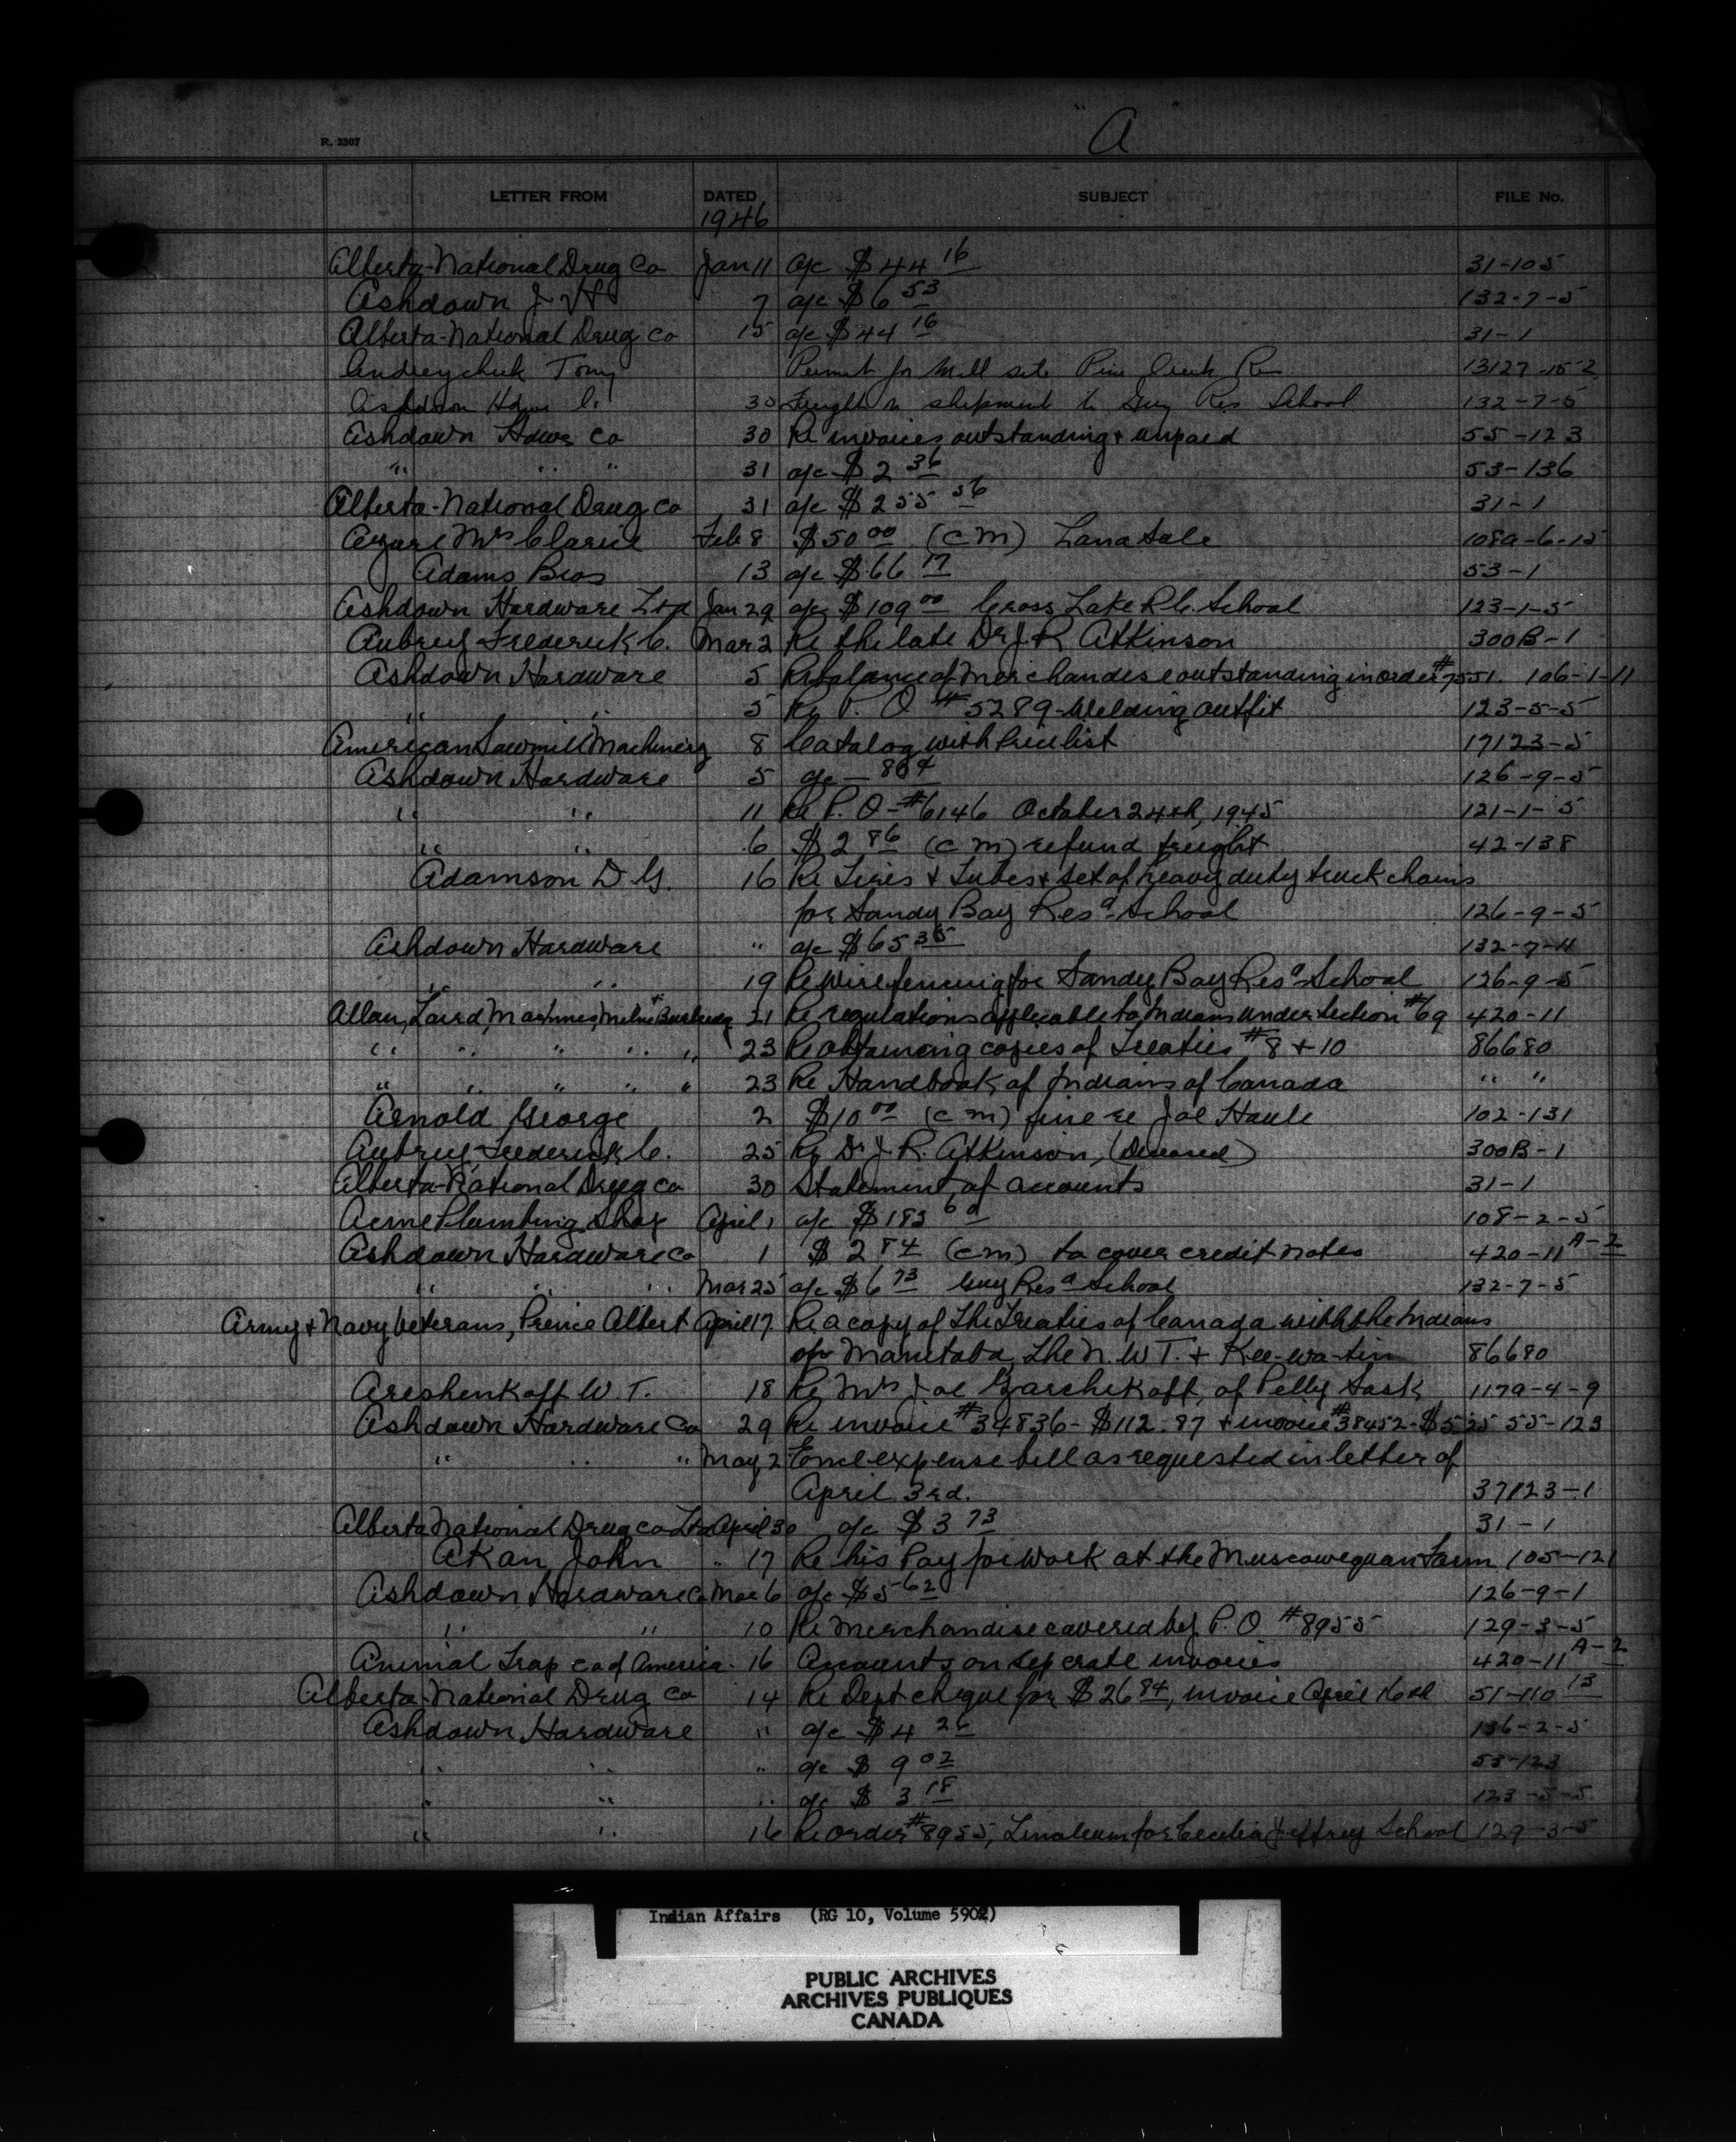 "A"
R. 2307
LETTER FROM DATED SUBJECT FILE No.
1946
Alberta-National Drug Co Jan 11 a/c $44 16 31-105
Ashdown J. H. 7 a/c $6 53 132-7-5
Alberta-National Drug Co 15 a/c $44 16 31-1
Andreychuk Tony Permit for Mill site Pine Creek Res. 13127-15-2
Ashdown Hdwe Co. 30 Freight on shipment to Guy Res School 132-7-5
Ashdown Hdwe Co 30 Re invoices outstanding & unpaid 55-123
" " " 31 a/c $2 36 53-136
Alberta-National Drug Co 31 a/c $255 56 31-1
Mrs Feb 8 $50 00 (C M) Land Sale 108a-6-15
Adams Bros 13 a/c $66 17 53-1
Ashdown Hardware Ltd Jan 29 a/c $109 00 Cross Lake R.C. School 123-1-5
Aubrey Frederick C. Mar 2 Re the late Dr J. R Atkinson 300B-1
Ashdown Hardware 5 Re balance of Merchandise outstanding in order #7551. 106-1-11
" " 5 Re P. O #5289-Welding outfit 123-5-5
American Sawmill Machinery 8 Catalog with Price list 17123-5
Ashdown Hardware 5 a/c — 80¢ 126-9-5
" " 11 Re P. O-#6146 October 24th, 1945 121-1-5
" " 6 $2 86 (C M) refund freight 42-138
Adamson D. G. 16 Re Tires & Tubes & set of heavy duty truck chains
for Sandy Bay Resd School 126-9-5
Ashdown Hardware " a/c $65 35 132-7-11
" " 19 Re Wire fencing for Sandy Bay Resd School 126-9-5
Allan, Laird, MacInnes, Milne & Burbidge 21 Re regulations applicable to Indians under section #69 420-11
" " " " " 23 Re Obtaining copies of Treaties #8 & 10 86680
" " " " " 23 Re Handbook of Indians of Canada " "
Arnold George 2 $10 00 (C M) fine re Joe Houle 102-131
Aubrey Frederick C. 25 Re Dr J. R. Atkinson, (Deceased) 300B-1
Alberta-National Drug Co 30 Statement of accounts 31-1
Acme Plumbing Shop April 1 a/c $183 60 108-2-5
Ashdown Hardware Co 1 $2 84 (C M) to cover credit notes 420-11 A-2
" " " Mar 25 a/c $6 73 Guy Resd School 132-7-5
Army & Navy Veterans, Prince Albert April 17 Re a copy of The Treaties of Canada with the Indians
of Manitoba, the N. W T. & Kee-wa-tin 86680
Areshenkoff W. T. 18 Re Mrs Joe Garchikoff, of Pelly Sask 117a-4-9
Ashdown Hardware Co 29 Re invoice #34836-$112.87 & invoice #38452-$5.25 55-123
" " " May 2 Encl expense bill as requested in letter of
April 3rd. 37123-1
Alberta National Drug Co Ltd April 30 a/c $3 73 31-1
Akan John " 17 Re his Pay for work at the Muscowequan Farm 105-121
Ashdown Hardware Co Mar 6 a/c $5 62 126-9-1
" " 10 Re Merchandise covered by P. O #8955 129-3-5
Animal Trap Co of America. 16 Accounts on seperate invoices 420-11 A-2
Alberta-National Drug Co 14 Re Dept cheque for $26 84, invoice April 16th 51-110 13
Ashdown Hardware " a/c $4 26 136-2-5
" " " a/c $ 9 02 53-123
" " " a/c $ 3 18 123-5-5
" " 16 Re order #8955, Linoleum for Cecilia Jeffrey School 129-3-5
Indian Affairs (RG 10, Volume 5902)
PUBLIC ARCHIVES
ARCHIVES PUBLIQUES
CANADA